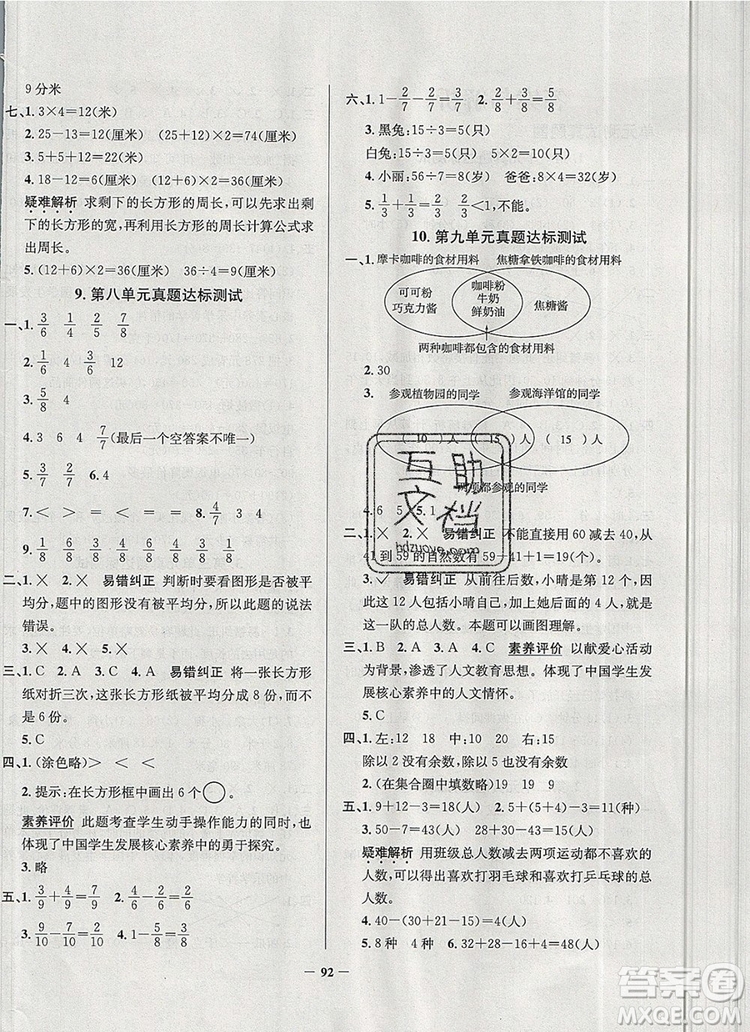 9 分米
七、1. 3×4=12(米)
2. 25-13=12(厘米) (25+12)×2=74(厘米)
3. 5+5+12=22(厘米)
4. 18-12=6(厘米) (12+6)×2=36(厘米)
疑难解析 求剩下的长方形的周长,可以先求出剩
下的长方形的宽,再利用长方形的周长计算公式求
出周长。
5. (12+6)×2=36(厘米) 36÷4=9(厘米)
9. 第八单元真题达标测试
一、1. 3/6 1/4 2/5 7/8
2. 1/6 4 3/6 12
3. 5/8 4
4. 3 6 4 7/7(最后一个空答案不唯一)
5. 1/2 2/2 6. 4
7. > < = < 8. 4/7 3/7
9. 1/8 5/8 4/8 6/8
二、1. × 2. × 易错纠正 判断时要看图形是否被平
均分,题中的图形没有被平均分,所以题中的说法
错误。
3. × 4. × 5. ×
三、1. C 2. A 3. A 4. C 易错纠正 将一张长方形
纸对折三次,这张长方形纸被平均分成 8 份,而不
是 6 份。
5. C
四、1. (涂色略) > < < >
2. 提示:在长方形框中画出 6 个◯。
素养评价 此题考查学生动手操作能力的同时,也
体现了中国学生发展核心素养中的勇于探究。
3. 略
五、1. 3/9+4/9=7/9 2. 2/6+3/6=5/6
3. 9/10-2/10=7/10 4. 1-5/8=3/8
六、1. 1-2/7-2/7=3/7 2. 2/5+1/5=3/5
3. 黑兔:15÷3=5(只)
白兔:15÷3=5(只) 5×2=10(只)
4. 小丽:56÷7=8(岁) 爸爸:8+28=36(岁)
5. 1/3+1/3=2/3 2/3<1,不能。
10. 第九单元真题达标测试
一、1. 摩卡咖啡的食材用料 焦糖拿铁咖啡的食材用料
可可粉
巧克力酱
咖啡粉
牛奶
鲜奶油
焦糖酱
两种咖啡都包含的食材用料
2. 30
3. 参观植物园的同学 参观海洋馆的同学
( 10 )人 ( 15 )人 ( 15 )人
两项都参观的同学
4. 6 5 5. 1
二、1. × 2. × 易错纠正 不能直接用 60 减去 40,从
41 到 59 的自然数有 59-41+1=19(个)。
3. ✓ 易错纠正 从前往后数,小晴是第 12 个,因
此这 12 人包括小晴,再加上她后面的 4 人,就是
这一队的总人数。本题可以画图理解。
三、1. B 2. B 3. C 4. C 素养评价 以献爱心活动
为背景,渗透了人文教育思想。体现了中国学生发
展核心素养中的人文情怀。
5. C
四、1. 左:12 18 中:10 20 右:15
除以 6 没有余数 除以 5 也没有余数
2. (在集合圈中填数略)19 19 9
五、1. 9+12-3=18(种) 2. 5+(5+4-3)=11(种)
3. 50-7=43(人) 28+30-43=15(人)
疑难解析 用班级总人数减去两项运动都不喜欢的
人数,可以得出喜欢打羽毛球和喜欢打乒乓球的总
人数。
4. 40-(30+21-15)=4(人)
5. 8 种 4 种 6. 32+32-16=48(人)
— 92 —
互助
文档
hdzuoye.com
答案圈
MXQE.COM